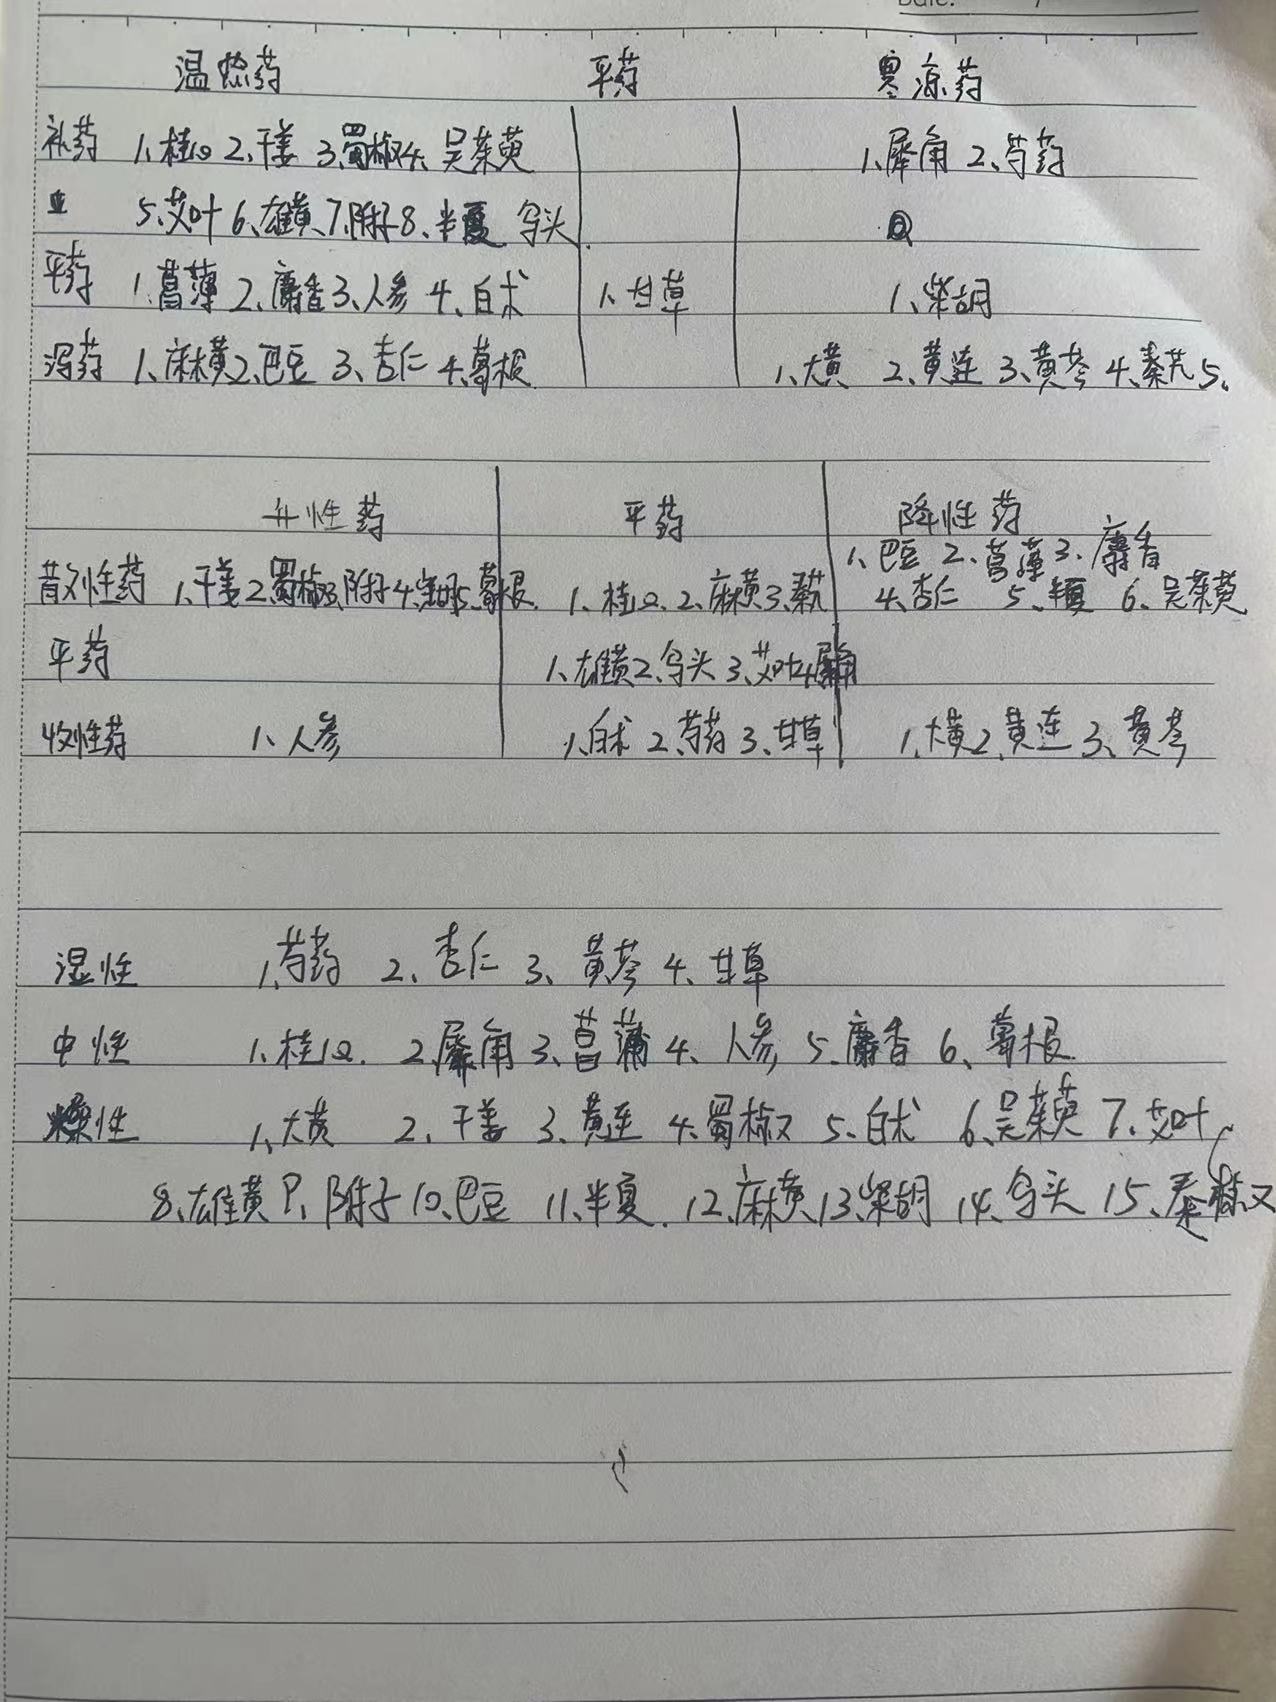 Date:
温热药 平药 寒凉药
补药 1、桂心 2、干姜 3、蜀椒 4、吴茱萸 1、犀角 2、芍药
5、艾叶 6、雄黄 7、附子 8、半夏 乌头
平药 1、菖蒲 2、麝香 3、人参 4、白术 1、甘草 1、柴胡
泻药 1、麻黄 2、巴豆 3、杏仁 4、葛根 1、大黄 2、黄连 3、黄芩 4、秦艽 5、
升性药 平药 降性药
1、巴豆 2、菖蒲 3、麝香
散性药 1、干姜 2、蜀椒 3、附子 4、柴胡 5、葛根 1、桂心 2、麻黄 3、秦艽 4、杏仁 5、半夏 6、吴茱萸
平药 1、雄黄 2、乌头 3、艾叶 4、犀角
收性药 1、人参 1、白术 2、芍药 3、甘草 1、大黄 2、黄连 3、黄芩
湿性 1、芍药 2、杏仁 3、黄芩 4、甘草
中性 1、桂心 2、犀角 3、菖蒲 4、人参 5、麝香 6、葛根
燥性 1、大黄 2、干姜 3、黄连 4、蜀椒 5、白术 6、吴茱萸 7、艾叶
8、雄黄 9、附子 10、巴豆 11、半夏 12、麻黄 13、柴胡 14、乌头 15、秦椒